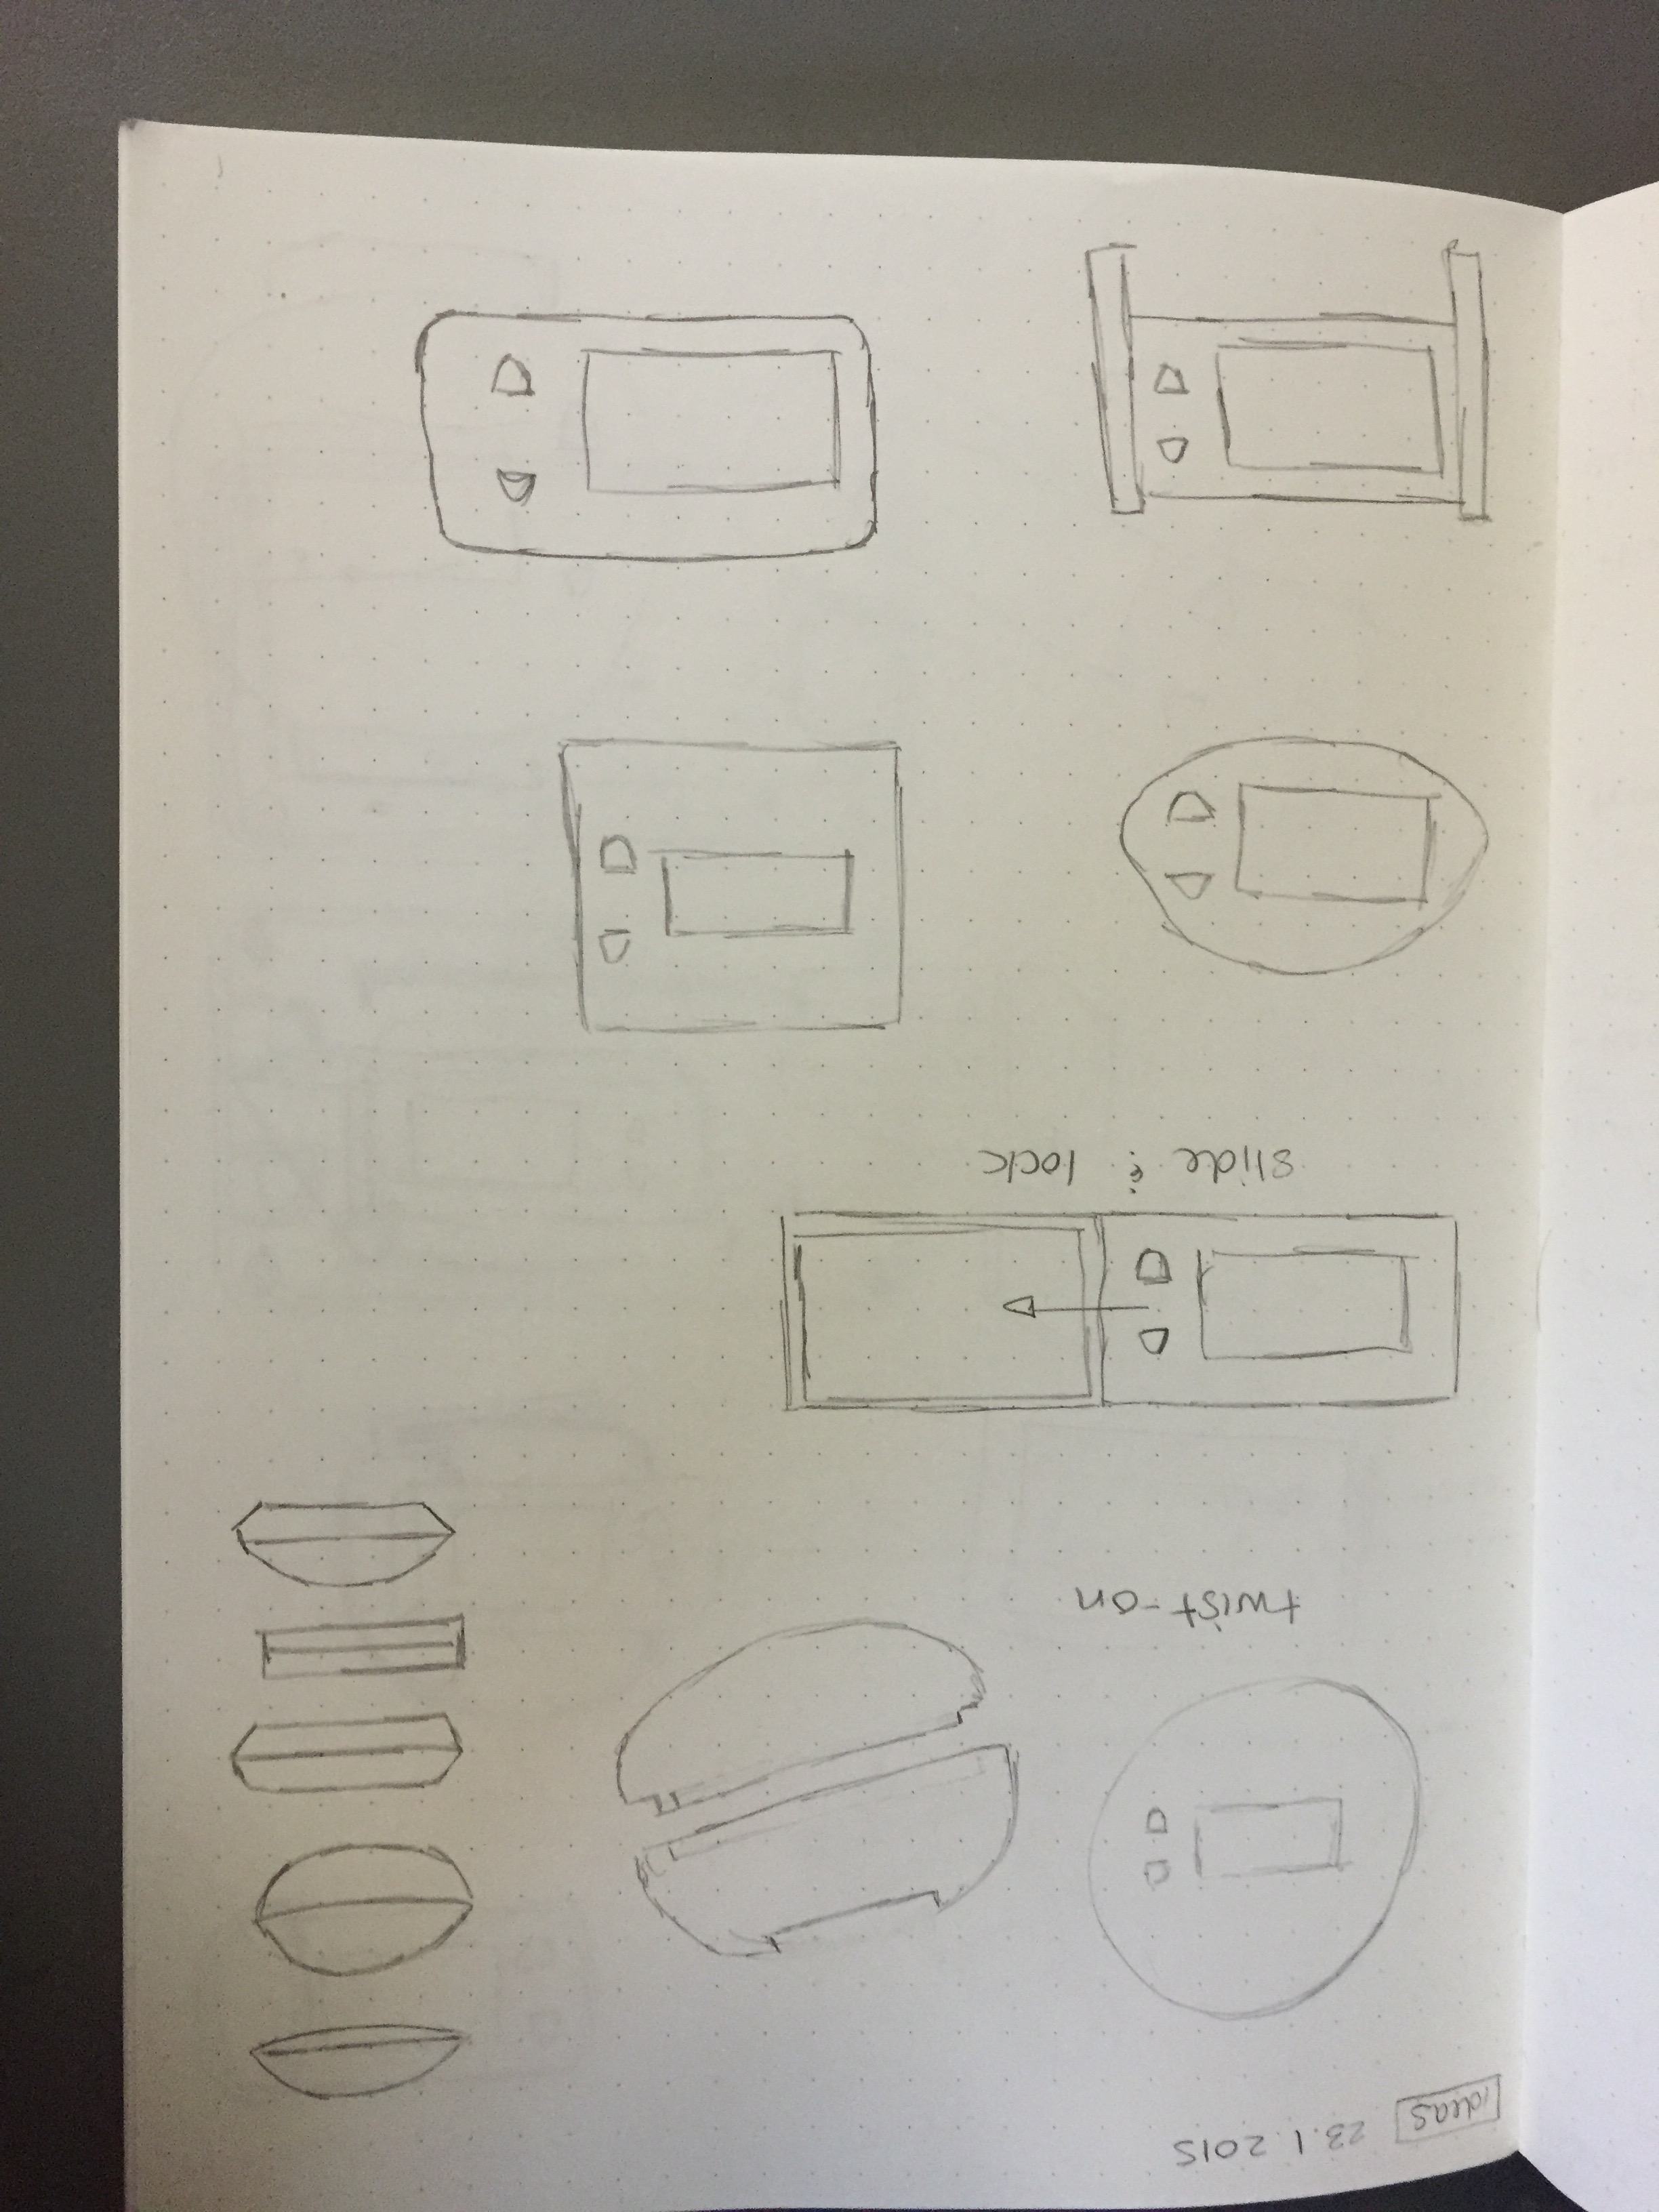 ideas 23.1.2015
twist-on
slide & lock